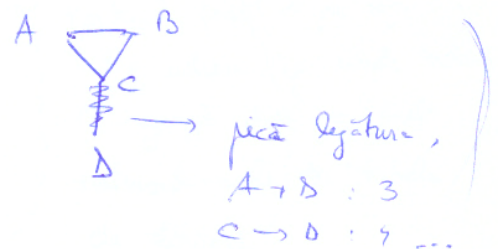 A B
C
D
pică legătura,
A → D : 3
C → D : 4 ...